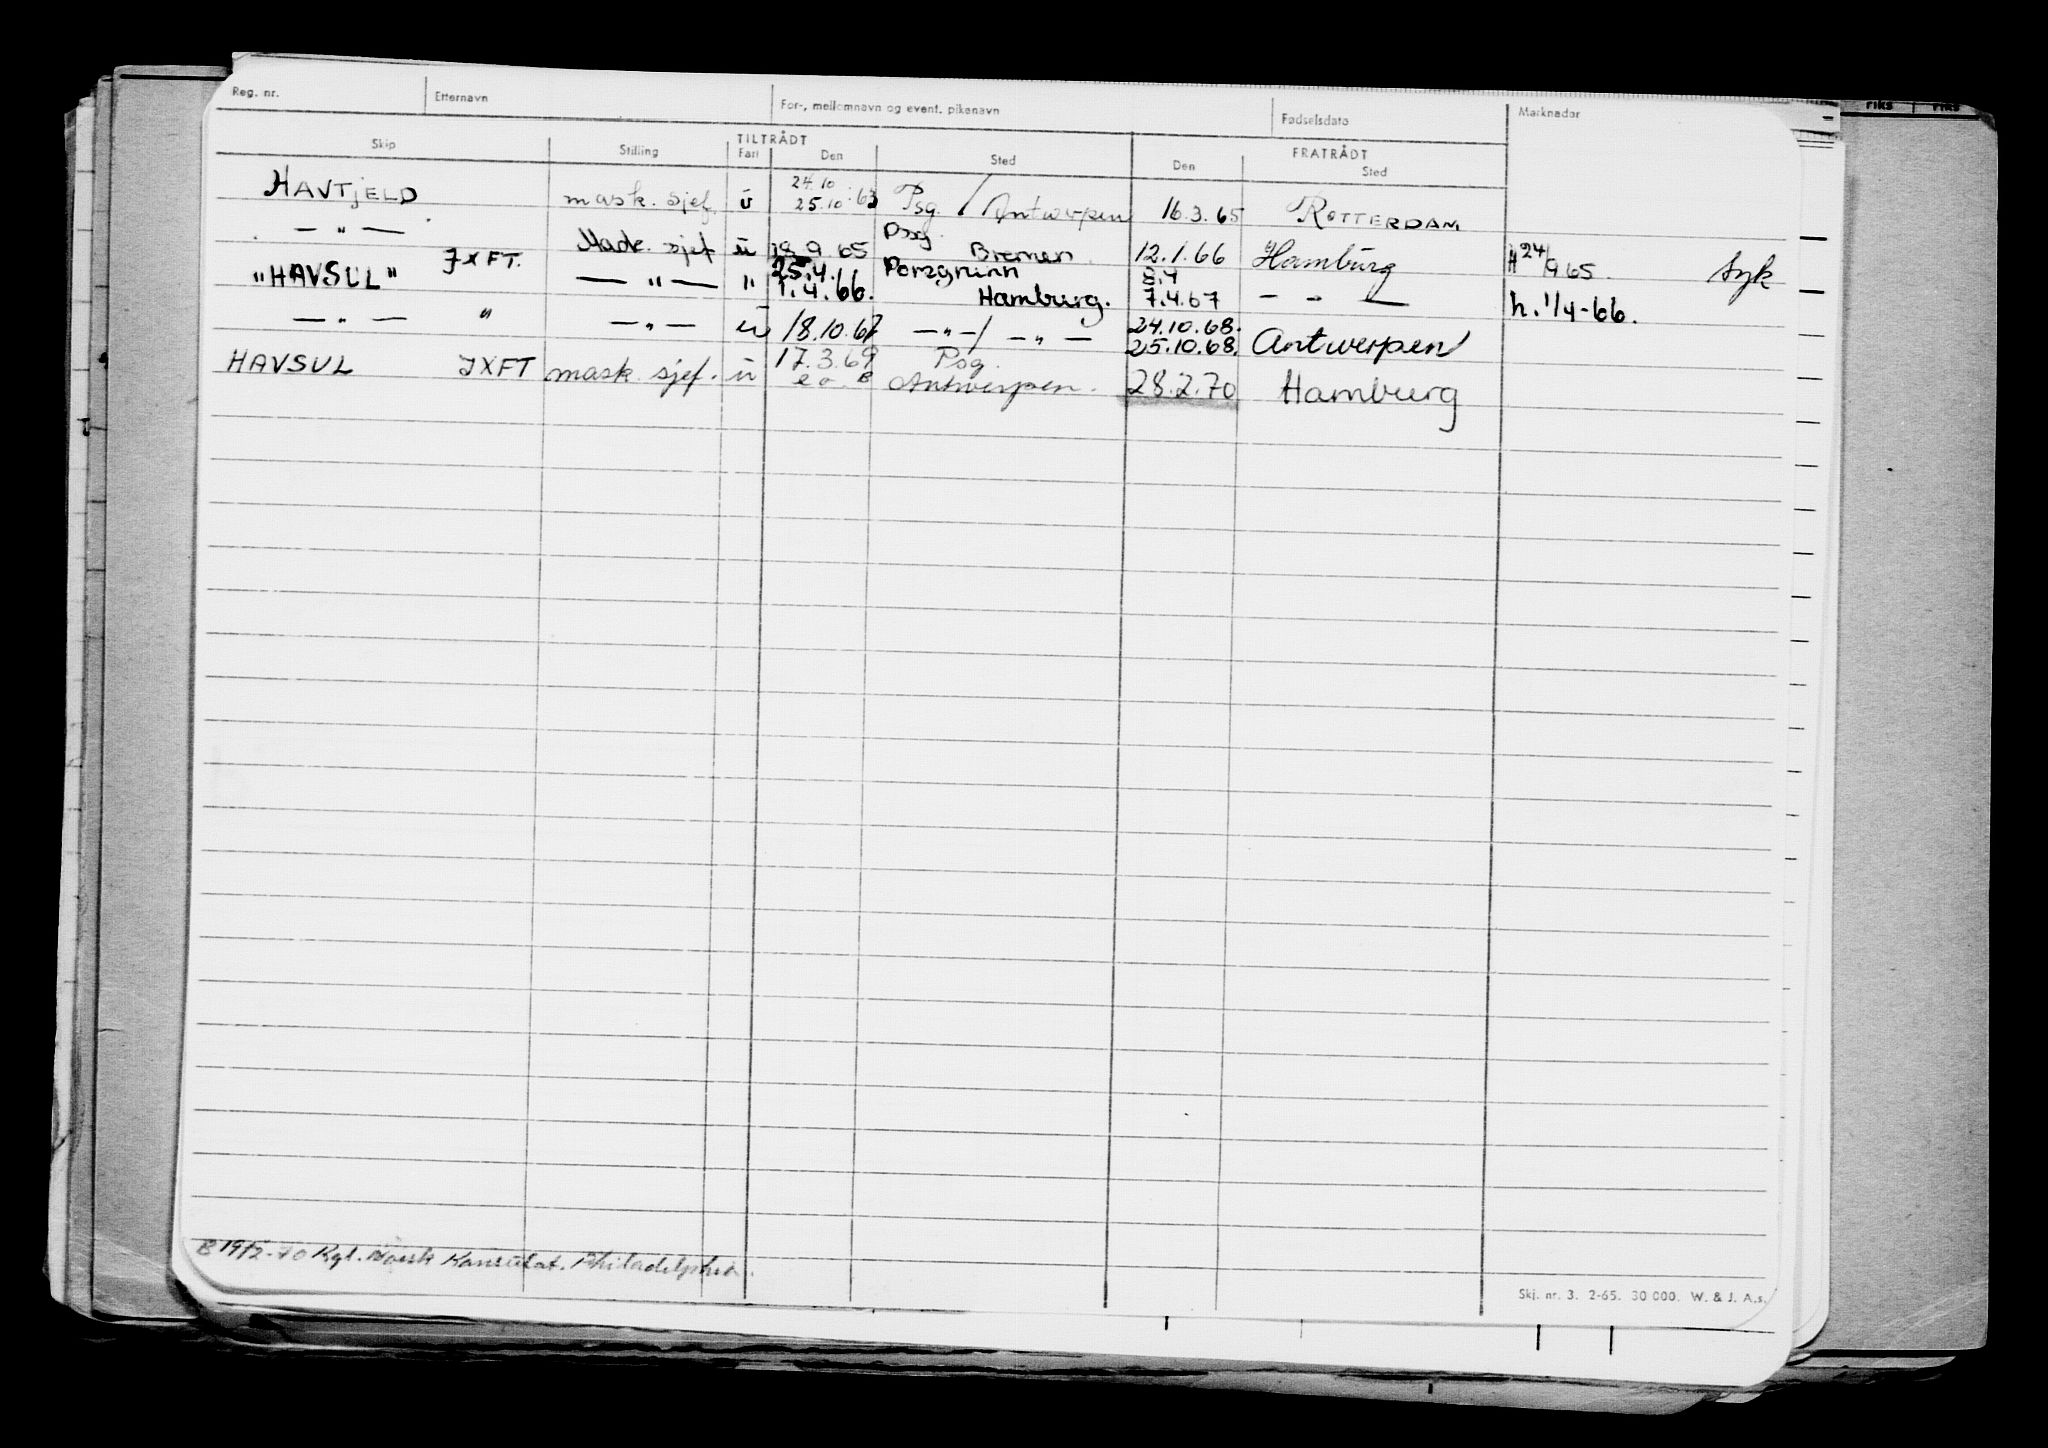 Reg. nr. Etternavn For-, mellomnavn og event. pikenavn Fødselsdato Merknader
TILTRÅDT FRATRÅDT
Skip Stilling Fart Den Sted Den Sted
HAVTJELD mask. sjef. ü 24.10 25.10.63 Psg. / Antwerpen 16.3.65 ROTTERDAM
— " — Mask. sjef ü 9.65 Psg. Bremen 12.1.66 Hamburg H 24/9 65. Syk
"HAVSUL" JXFT. — " — " 25.4. 1.4.66. Porsgrunn Hamburg. 8.4 7.4.67 — " — h. 1/4-66.
— " — " — " — ü 18.10.67 — " — / — " — 24.10.68. 25.10.68. Antwerpen
HAVSUL JXFT mask. sjef. ü 17.3.69 Psg. Antwerpen. 28.2.70 Hamburg
Kgl. Norsk Konsulat. Philadelphia.
Skj. nr. 3. 2-65. 30 000. W. & J. A.s.
riks riks